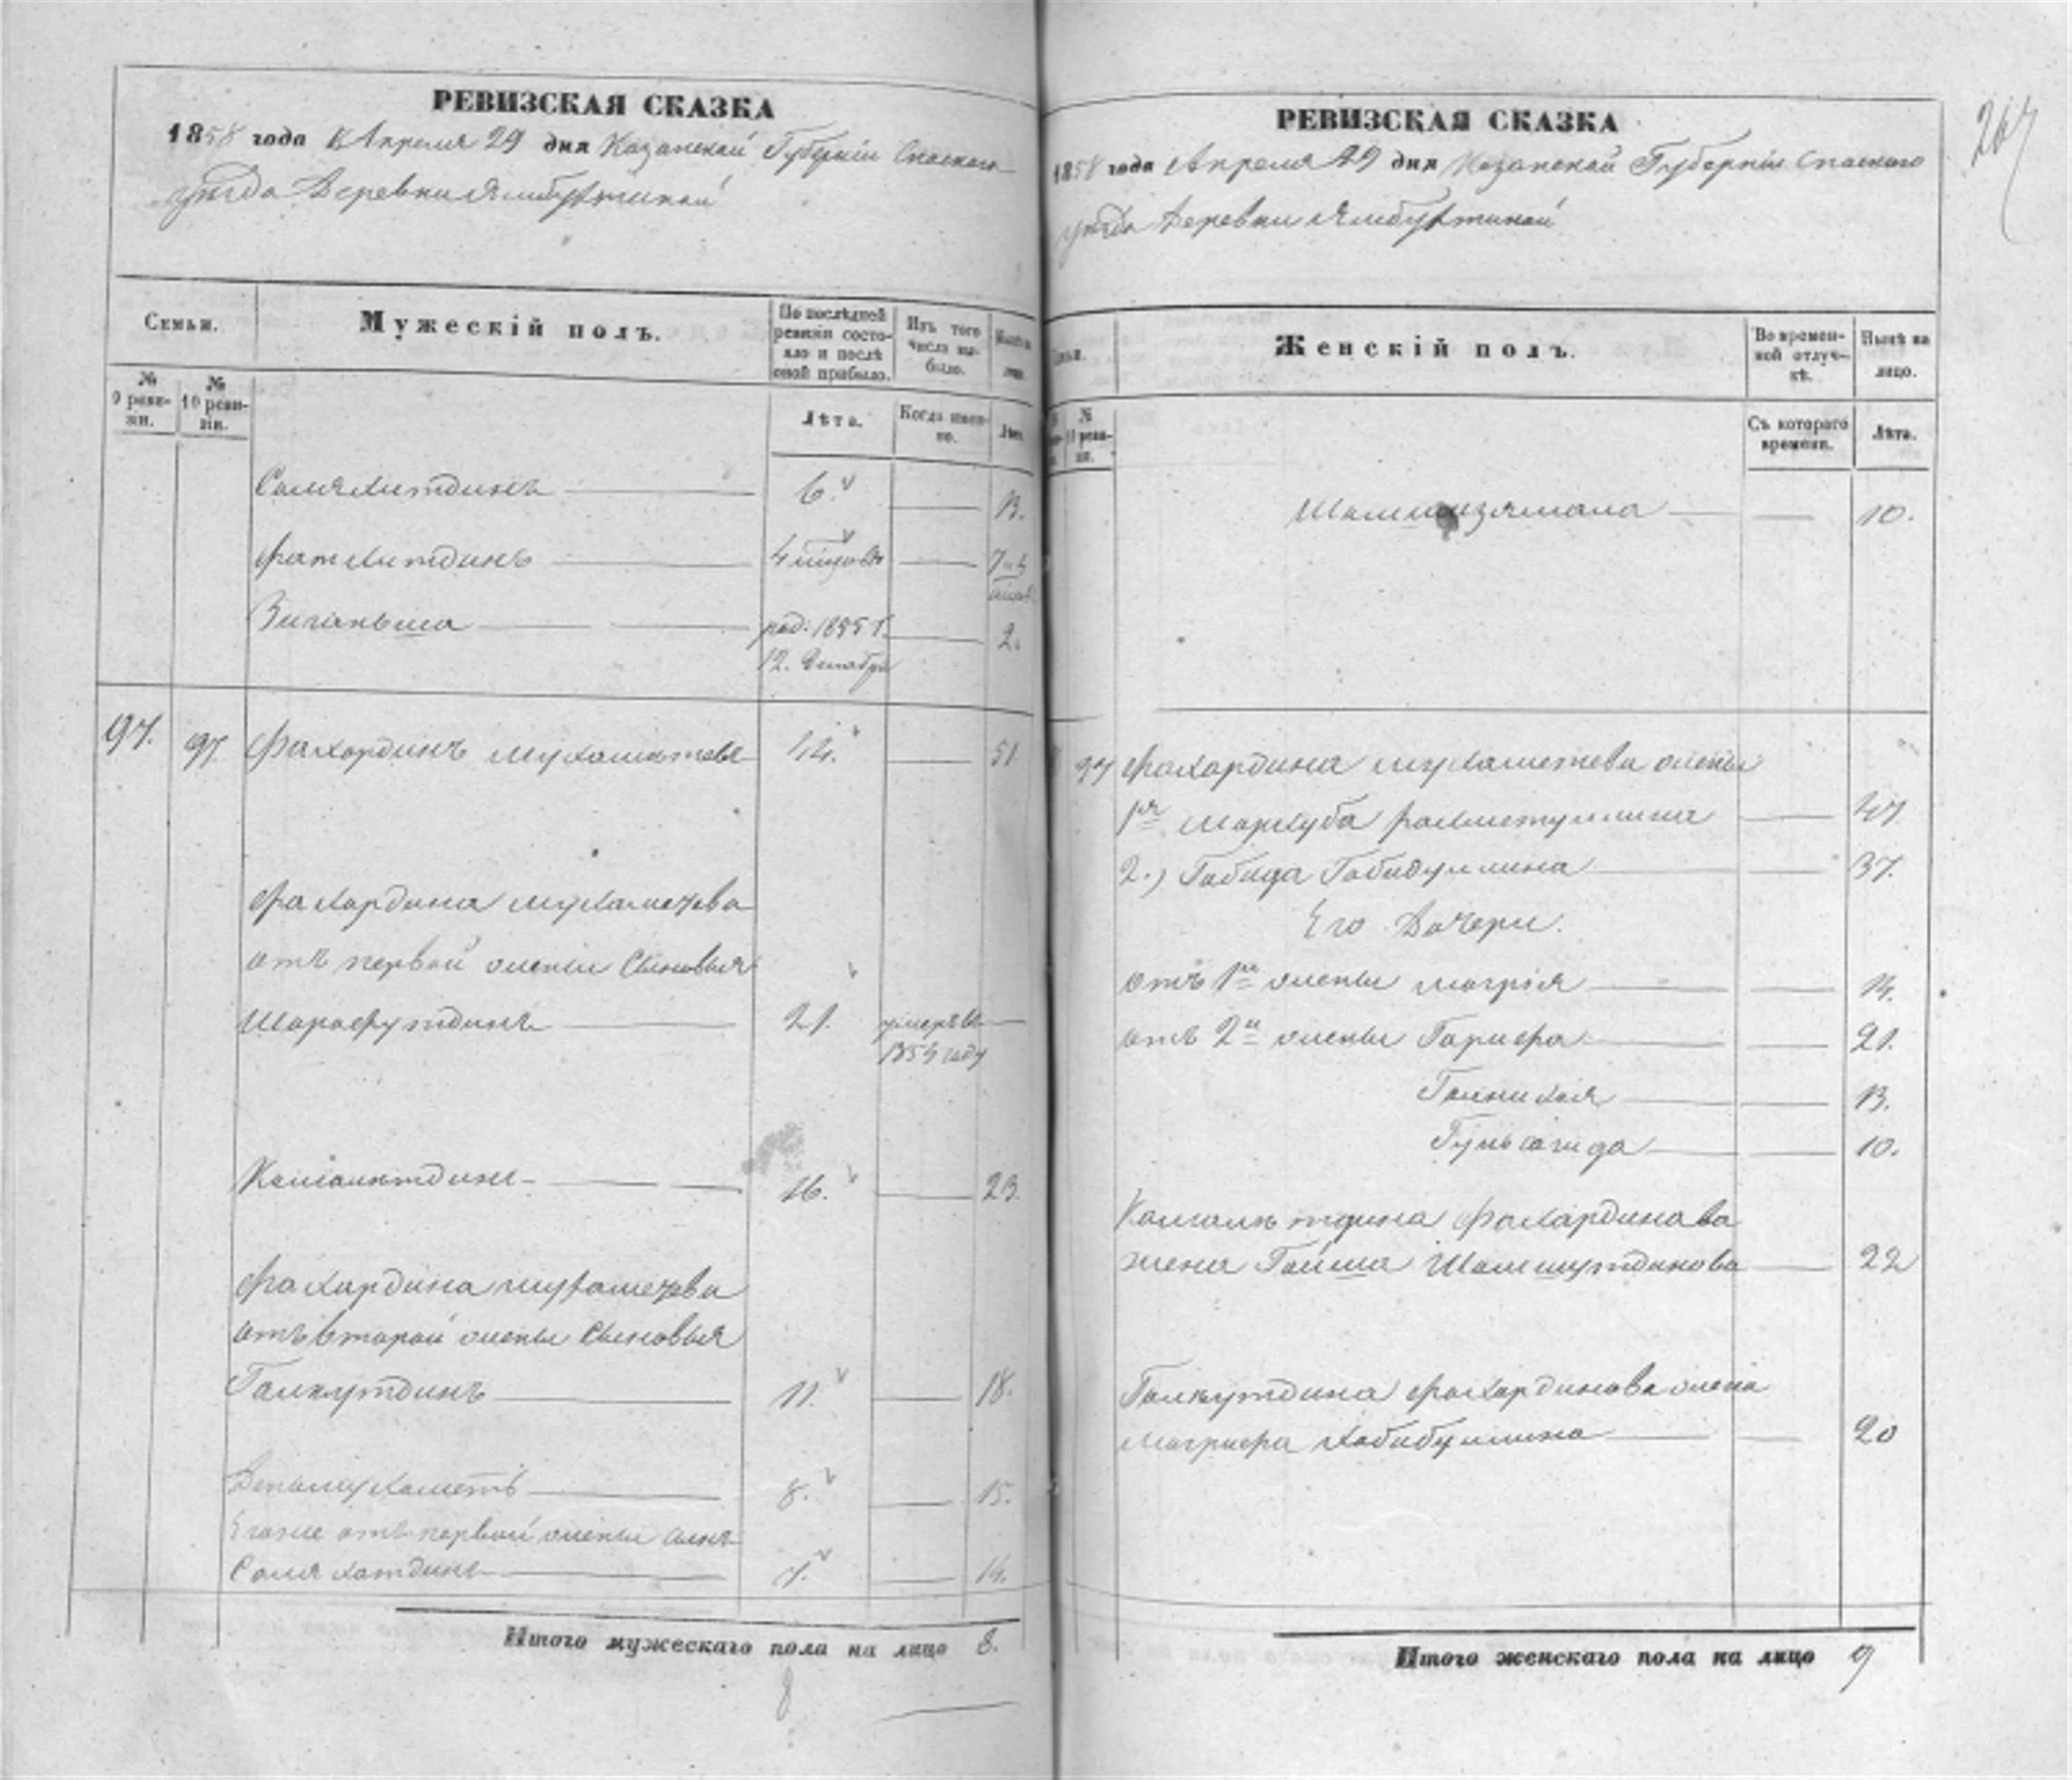 РЕВИЗСКАЯ СКАЗКА
1858 года Апреля 29 дня Казанской Губерніи Спаского
уѣзда Деревни Ямбухтиной
Семьи.
Мужескій полъ.
По послѣдней ревизіи состояло и послѣ оной прибыло.
Изъ того числа выбыло.
№ 9 ревизіи.
№ 10 ревизіи.
Лѣта.
Когда именно.
Лѣта.
Саляхитдинъ 6. 13.
Фатхитдинъ 4 мѣсяцовъ
Зиганьша род. 1855 г. 2.
12. декабря
97. 97 Фахардинъ Мухаметевъ 44. 51
Фахардина Мухаметева
отъ первой жены Сыновья
Шарафутдинъ 21. умеръ въ
1854 году
Камалетдинъ 16. 23.
Фахардина Мухаметева
отъ второй жены Сыновья
Галяутдинъ 11. 18.
8. 15.
Егоже отъ первой жены сынъ
Саляхатдинъ 7. 14.
Итого мужескаго пола на лицо 8.
8
РЕВИЗСКАЯ СКАЗКА
1858 года Апреля 29 дня Казанской Губерніи Спаского
уѣзда Деревни Ямбухтиной
Женскій полъ.
Во временной отлучкѣ.
Нынѣ на лицо.
Съ котораго времени.
Лѣта.
10.
97 Фахардина Мухаметева жены
1я Мархуба Рахметуллина 47
2.) Габида Габидуллина 37.
Его Дочери.
отъ 1й жены Магрія 14.
отъ 2й жены 21.
13.
Гульсагида 10.
Камалетдина Фахардинова
жена Гайша Шамшутдинова 22
Галяутдина Фахардинова жена
Хабибуллина 20
Итого женскаго пола на лицо 9